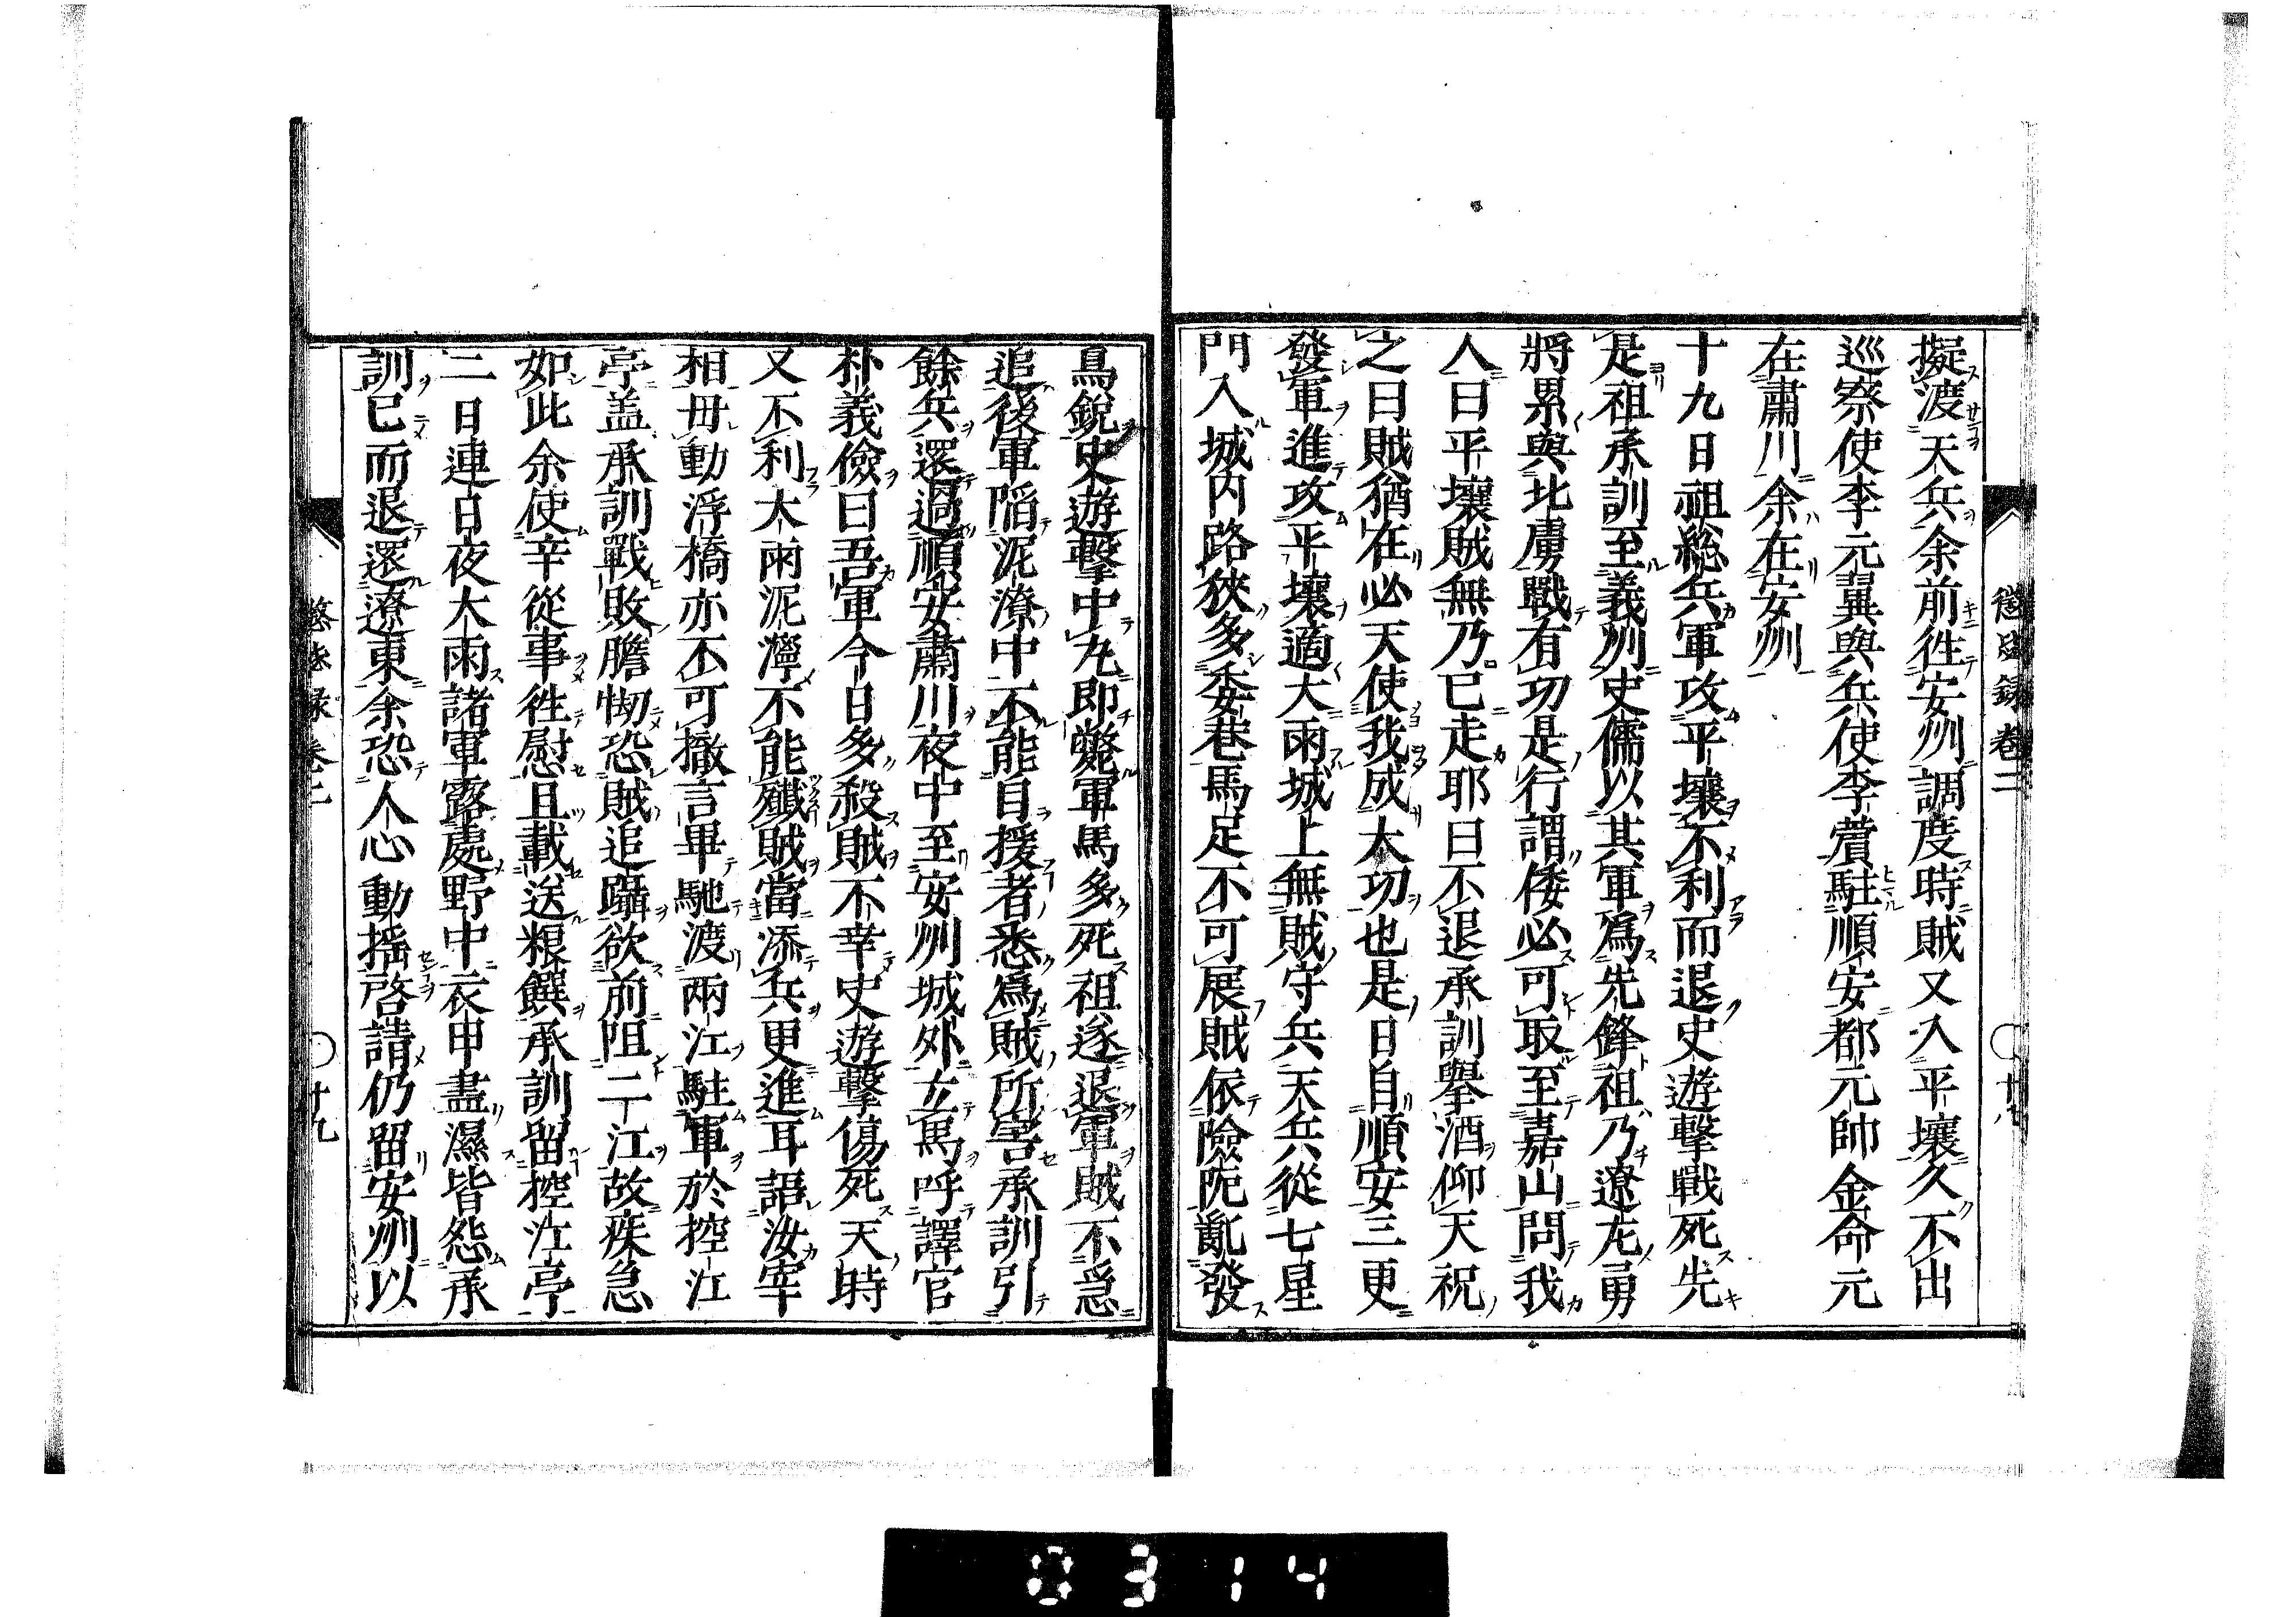 懲毖録卷二 〇十八
擬渡天兵余前徃安州調度時賊又入平壤久不出
巡察使李元翼與兵使李薲駐順安都元帥金命元
在肅川余在安州
十九日祖総兵軍攻平壤不利而退史遊撃戰死先
是祖承訓至義州史儒以其軍爲先鋒祖乃遼左勇
將累與北虜戰有功是行謂倭必可取至嘉山問我
人曰平壤賊無乃已走耶曰不退承訓擧酒仰天祝
之曰賊猶在必天使我成大功也是日自順安三更
發軍進攻平壤適大雨城上無賊守兵天兵從七星
門入城内路狹多委巷馬足不可展賊依險阨亂發
鳥銃史遊擊中丸即斃軍馬多死祖遂退軍賊不急
追後軍陷泥潦中不能自援者悉爲賊所害承訓引
餘兵還過順安肅川夜中至安州城外立馬呼譯官
朴義儉曰吾軍今日多殺賊不幸史遊擊傷死天時
又不利大雨泥濘不能殲賊當添兵更進耳語汝宰
相毋動浮橋亦不可撤言畢馳渡兩江駐軍於控江
亭盖承訓戰敗膽㤼恐賊追躡欲前阻二江故疾急
如此余使辛從事徃慰且載送粮饌承訓留控江亭
二日連日夜大雨諸軍露處野中衣甲盡濕皆怨承
訓已而退還遼東余恐人心動揺啓請仍留安州以
懲毖録卷二 〇十九
0314